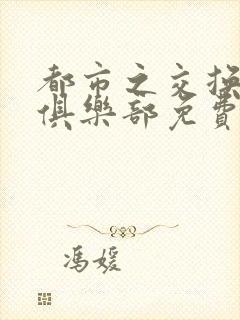 都市之交换
俱樂部免費
冯媛